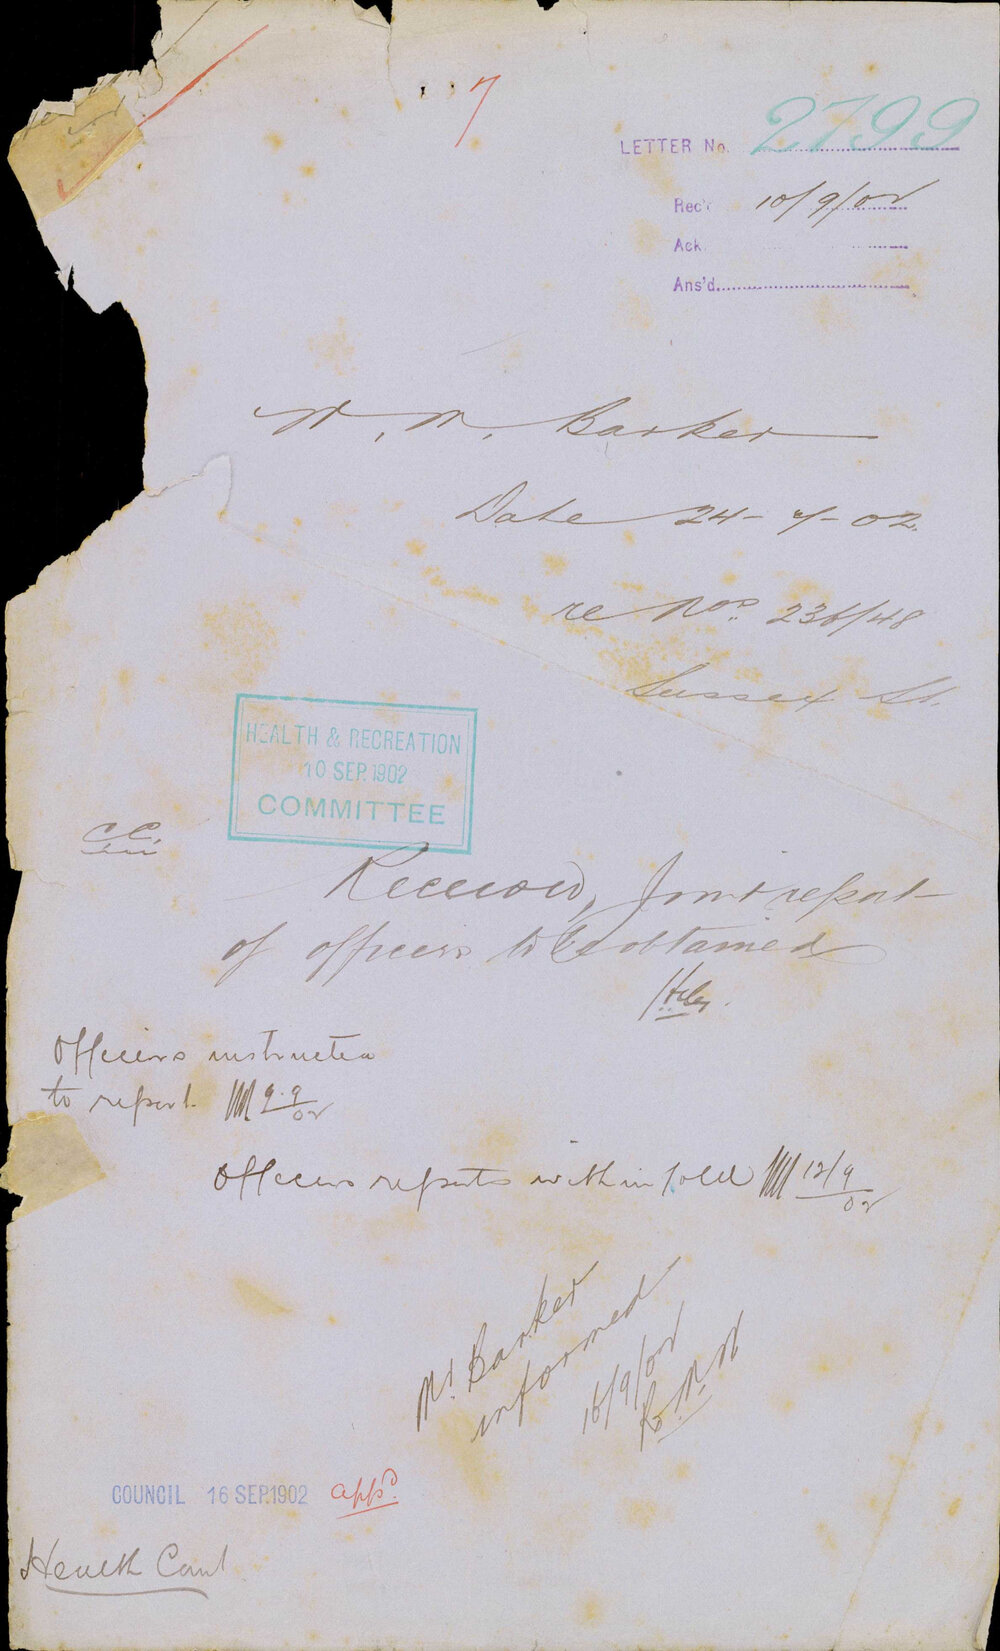 7
LETTER No. 2799
Rec'd 10/9/02
Ack.
Ans'd.
W. M. Barker
Date 24-7-02.
re Nos. 236/48
Sussex St.
HEALTH & RECREATION
10 SEP. 1902
COMMITTEE
Received, Joint report
of officers to be obtained
Officers instructed
to report 9.9/02
Officers reports within fold 12/9/02
Mr. Barker
informed
16/9/02
COUNCIL 16 SEP. 1902 appd.
Health Com